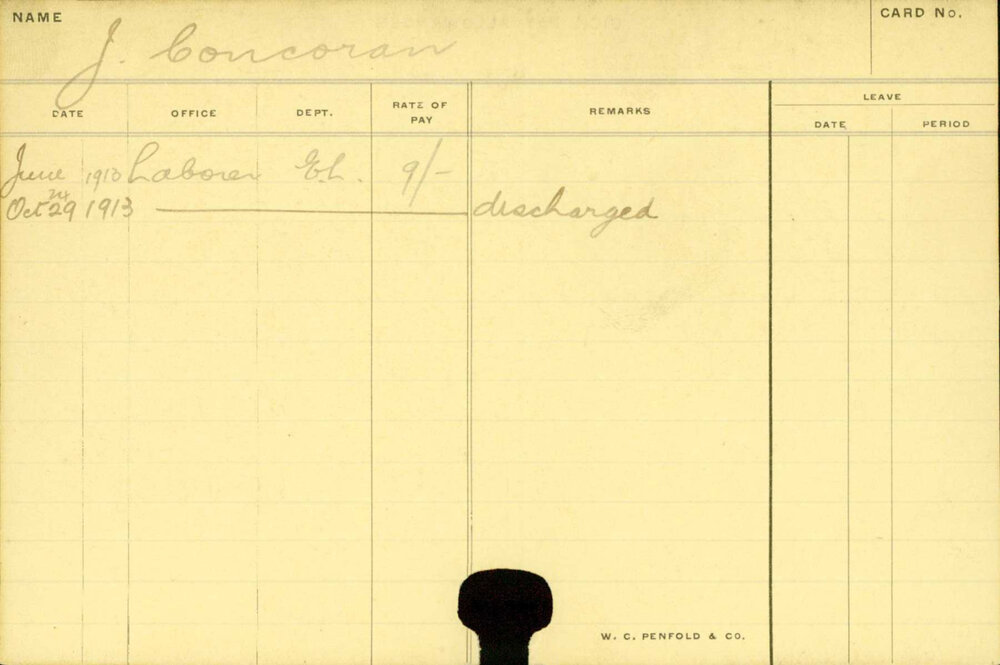 NAME
CARD No.
J. Concoran
DATE OFFICE DEPT. RATE OF PAY REMARKS LEAVE
DATE PERIOD
June 1913 Laborer E.L. 9/-
Oct 29th 1913 discharged
W. C. PENFOLD & CO.